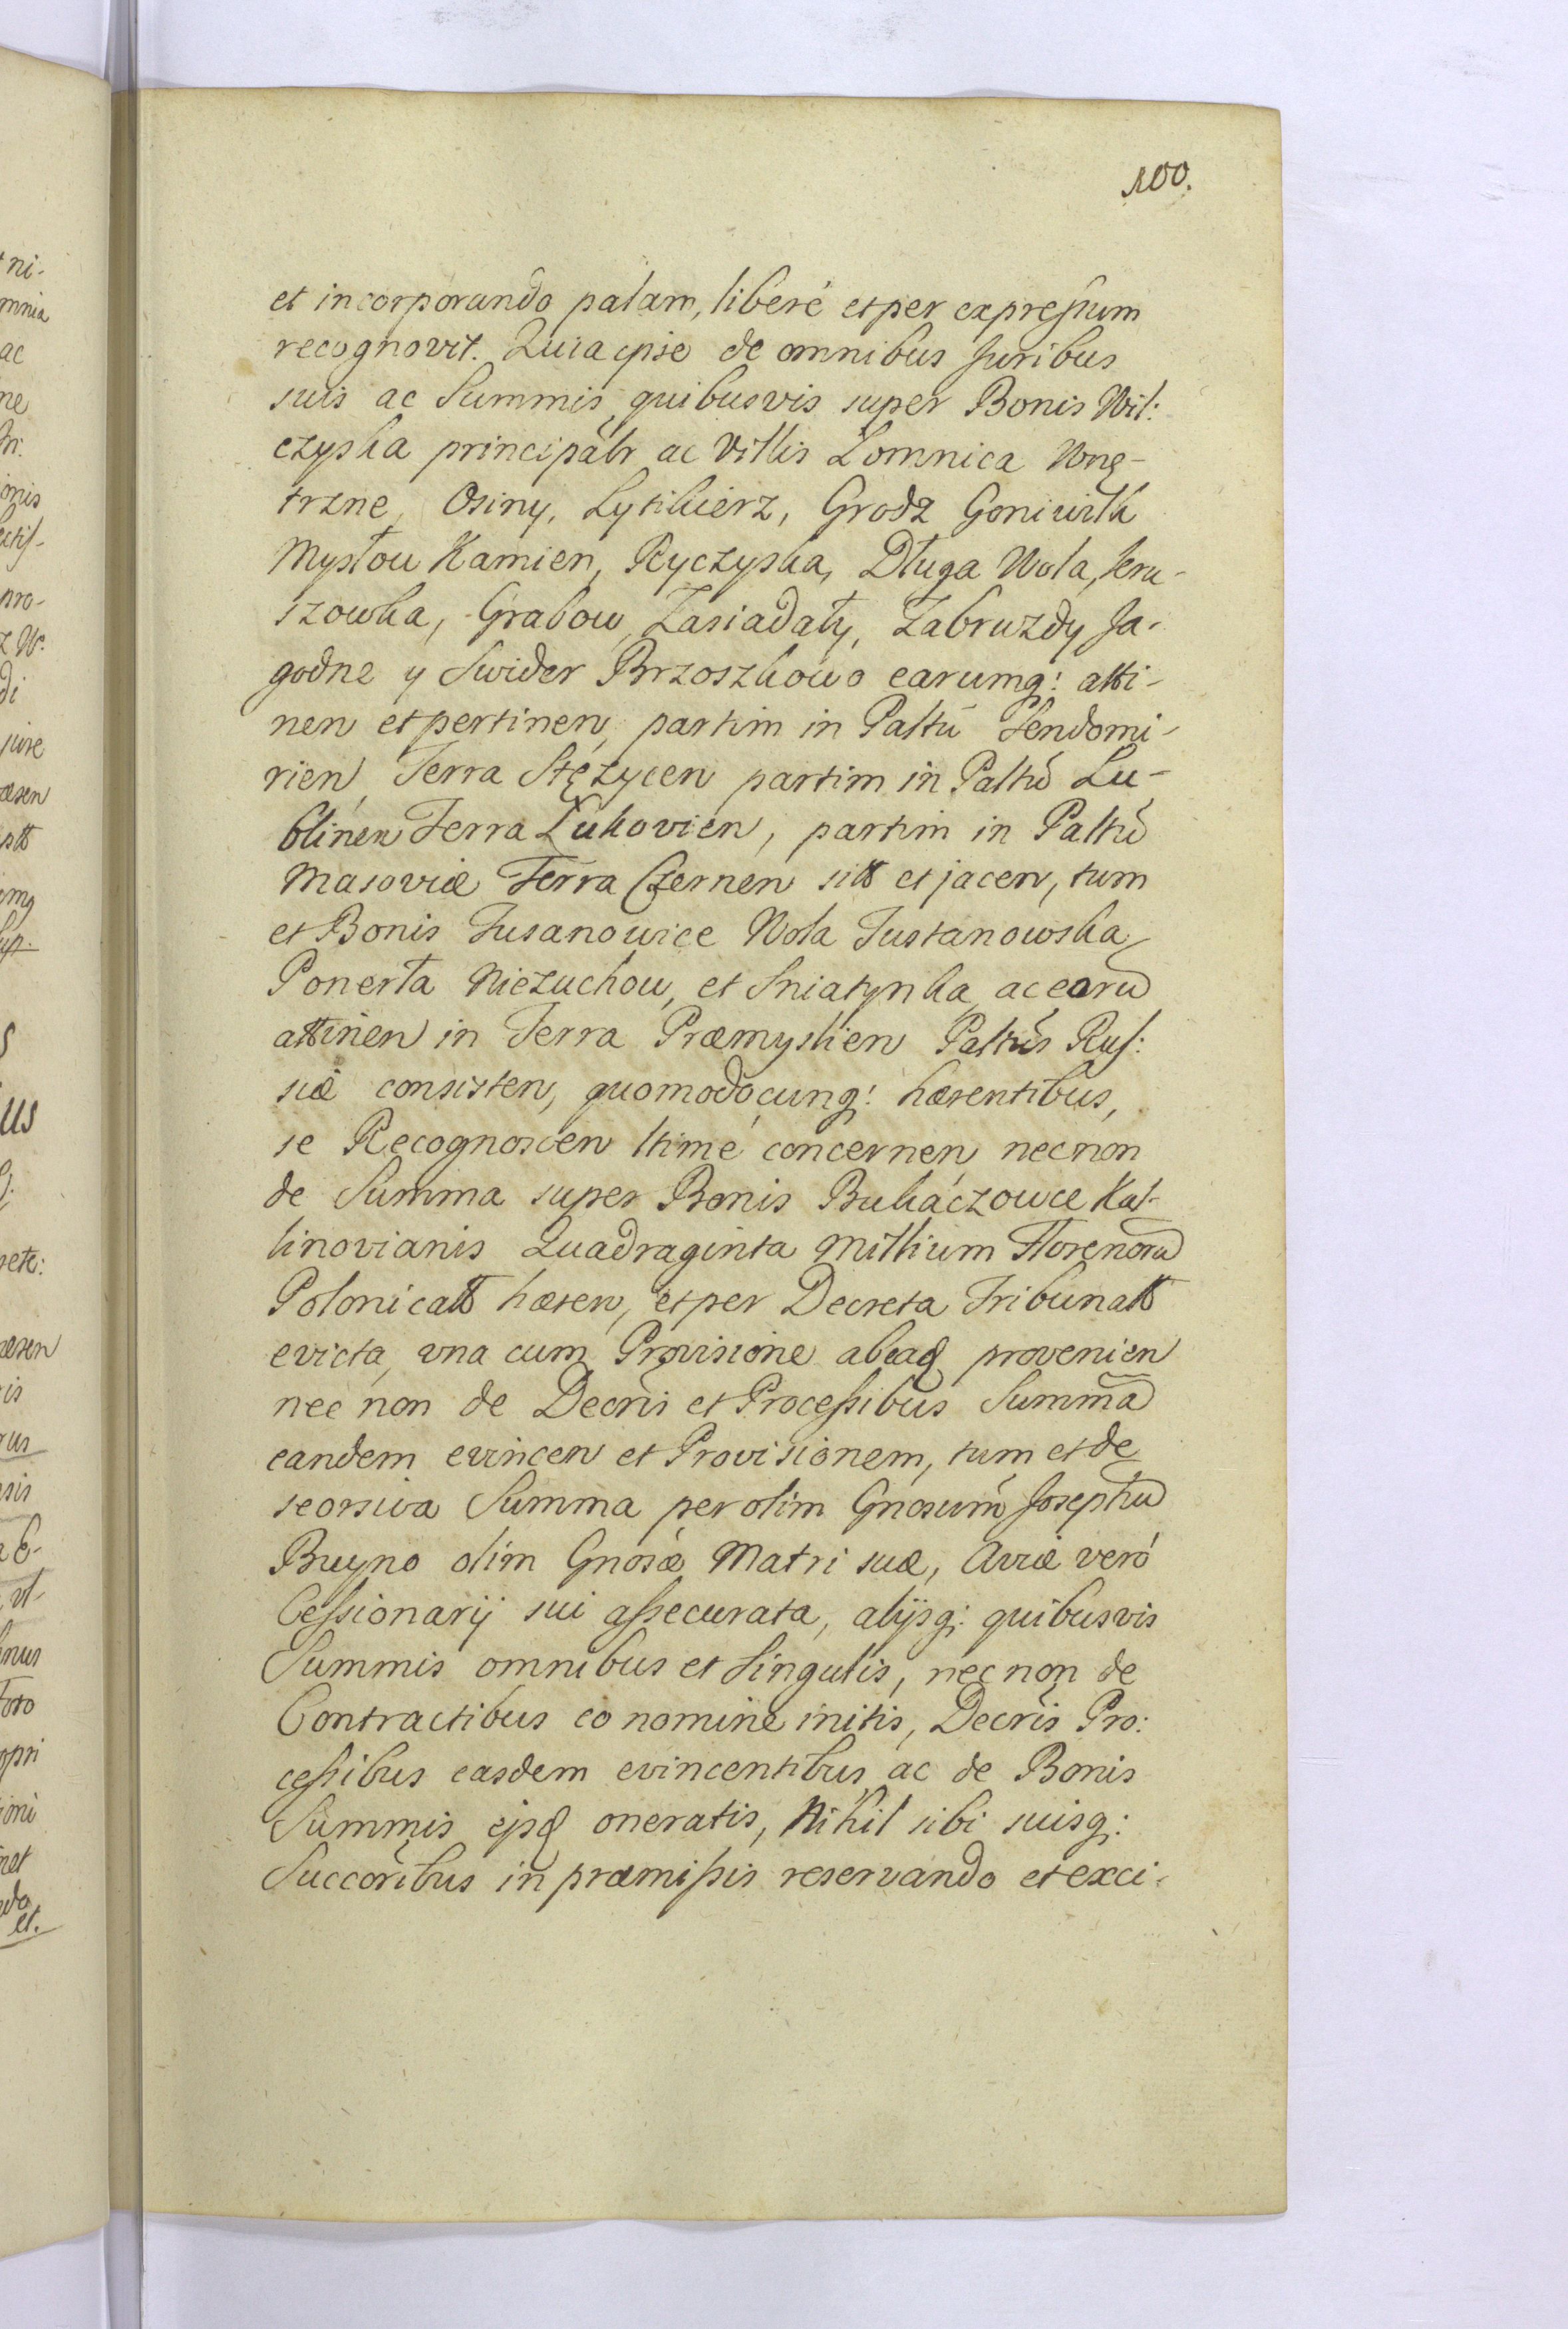 100.
et incorporando palam, liberé et per expressum
recognovit. Quia ipse de omnibus Juribus
suis ac Summis quibusvis super Bonis Wil:
czyska principalr ac Villis Łomnica Wnę-
trzne, Osiny, Lytikierz, Grodz Goniwilk
Mysłow Kamien, Ryczyska, Długa Wola, Jeru-
szowka, Grabow, Zasiadały, Zabruzdy Ja-
godne y Swider Brzoszkowo earumq: atti-
nen et pertinen, partim in Paltũ Sendomi-
rien, Terra Stężycen partim in Paltũ Lu-
blinen Terra Łukovien, partim in Paltũ
Masoviæ Terra Czernen sitt et jacen, tum
et Bonis Tusanowice Wola Tustanowska
Ponerła Niezuchow, et Sniatynka, ac earũ
attinen in Terra Præmyslien Paltũs Rus:
siæ consisten, quomodocunq: hærentibus,
se Recognoscen ltimé concernen, necnon
de Summa super Bonis Bukaczowce Kal-
linovianis Quadraginta Millium Florenorũ
Polonicatt hæren, et per Decreta Tribunatt
evicta, una cum Provisione abeaq provenien
nec non de Decris et Processibus Summã
eandem evincen et Provisionem, tum et de
seorsiva Summa per olim Gnosum Josephũ
Buyno olim Gnosæ Matri suæ, Aviæ veró
Cessionarij sui assecurata, alijsq: quibusvis
Summis omnibus et Singulis, nec non de
Contractibus eo nomine initis, Decris Pro:
cessibus easdem evincentibus, ac de Bonis
Summis ejsd oneratis, Nihil sibi suisq:
Succoribus in præmissis reservando et exci-